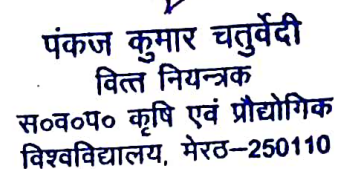 पंकज कुमार चतुर्वेदी
वित्त नियन्त्रक
स०व०प० कृषि एवं प्रौद्योगिक
विश्वविद्यालय, मेरठ–250110